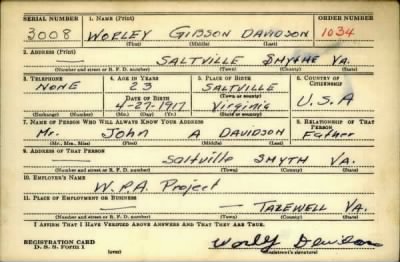 SERIAL NUMBER 1. NAME (Print) ORDER NUMBER
3008 WORLEY GIBSON DAVIDSON 1034
(First) (Middle) (Last)
2. ADDRESS (Print)
— SALTVILLE SMYTHE VA.
(Number and street or R. F. D. number) (Town) (County) (State)
3. TELEPHONE 4. AGE IN YEARS 5. PLACE OF BIRTH 6. COUNTRY OF CITIZENSHIP
NONE 23 SALTVILLE
DATE OF BIRTH (Town or county)
4-27-1917 Virginia U.S.A
(Exchange) (Number) (Mo.) (Day) (Yr.) (State or country)
7. NAME OF PERSON WHO WILL ALWAYS KNOW YOUR ADDRESS 8. RELATIONSHIP OF THAT PERSON
Mr. JOHN A DAVIDSON Father
(Mr., Mrs., Miss) (First) (Middle) (Last)
9. ADDRESS OF THAT PERSON
— Saltville SMYTH VA.
(Number and street or R. F. D. number) (Town) (County) (State)
10. EMPLOYER'S NAME
W.P.A. Project
11. PLACE OF EMPLOYMENT OR BUSINESS
— TAZEWELL VA.
(Number and street or R. F. D. number) (Town) (County) (State)
I AFFIRM THAT I HAVE VERIFIED ABOVE ANSWERS AND THAT THEY ARE TRUE.
REGISTRATION CARD
D. S. S. Form 1 (over) Worly Davidson
(Registrant's signature)